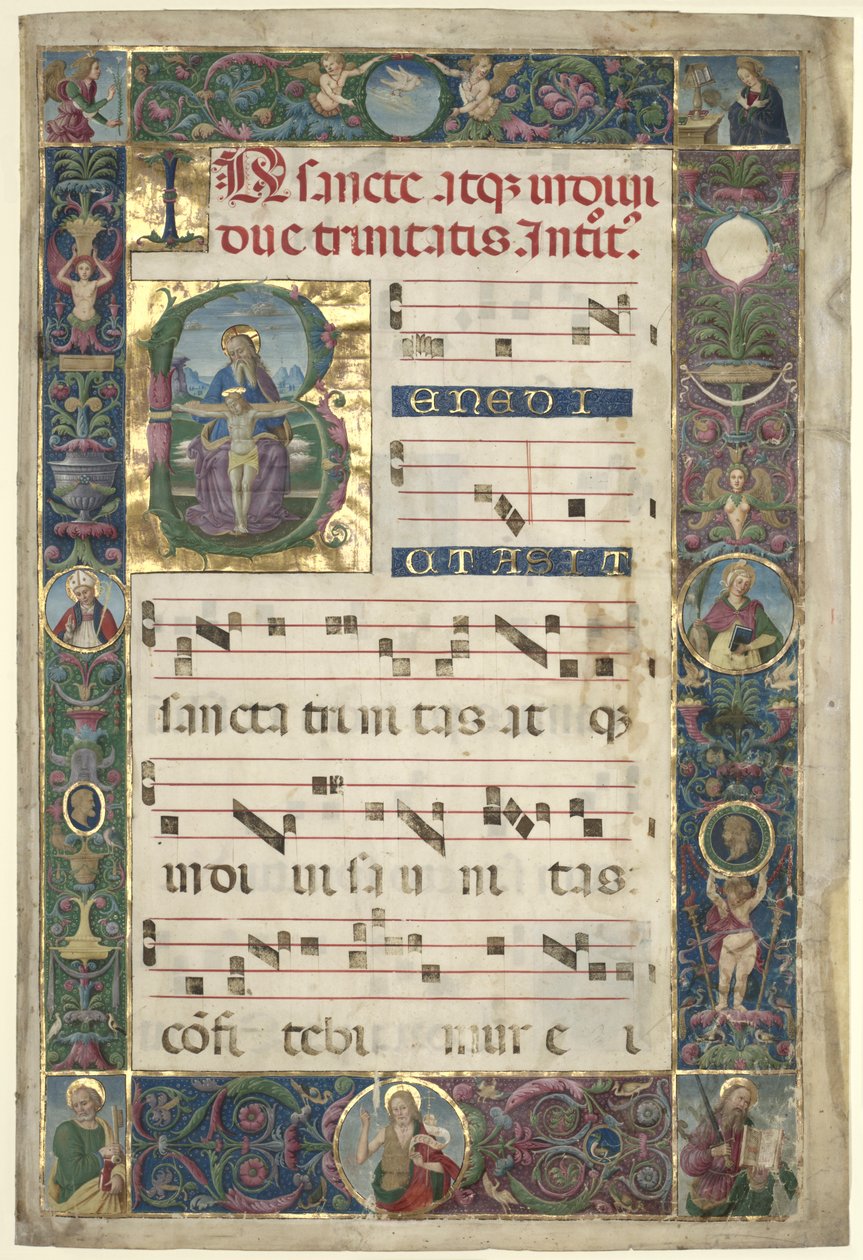 IN sancte atqꝫ indiui
due trinitatis. Intͦitꝰ.
B
ENEDI
CTA SIT
sancta trini tas at qꝫ
indi ui sa u ni tas:
cōfi tebi mur e i